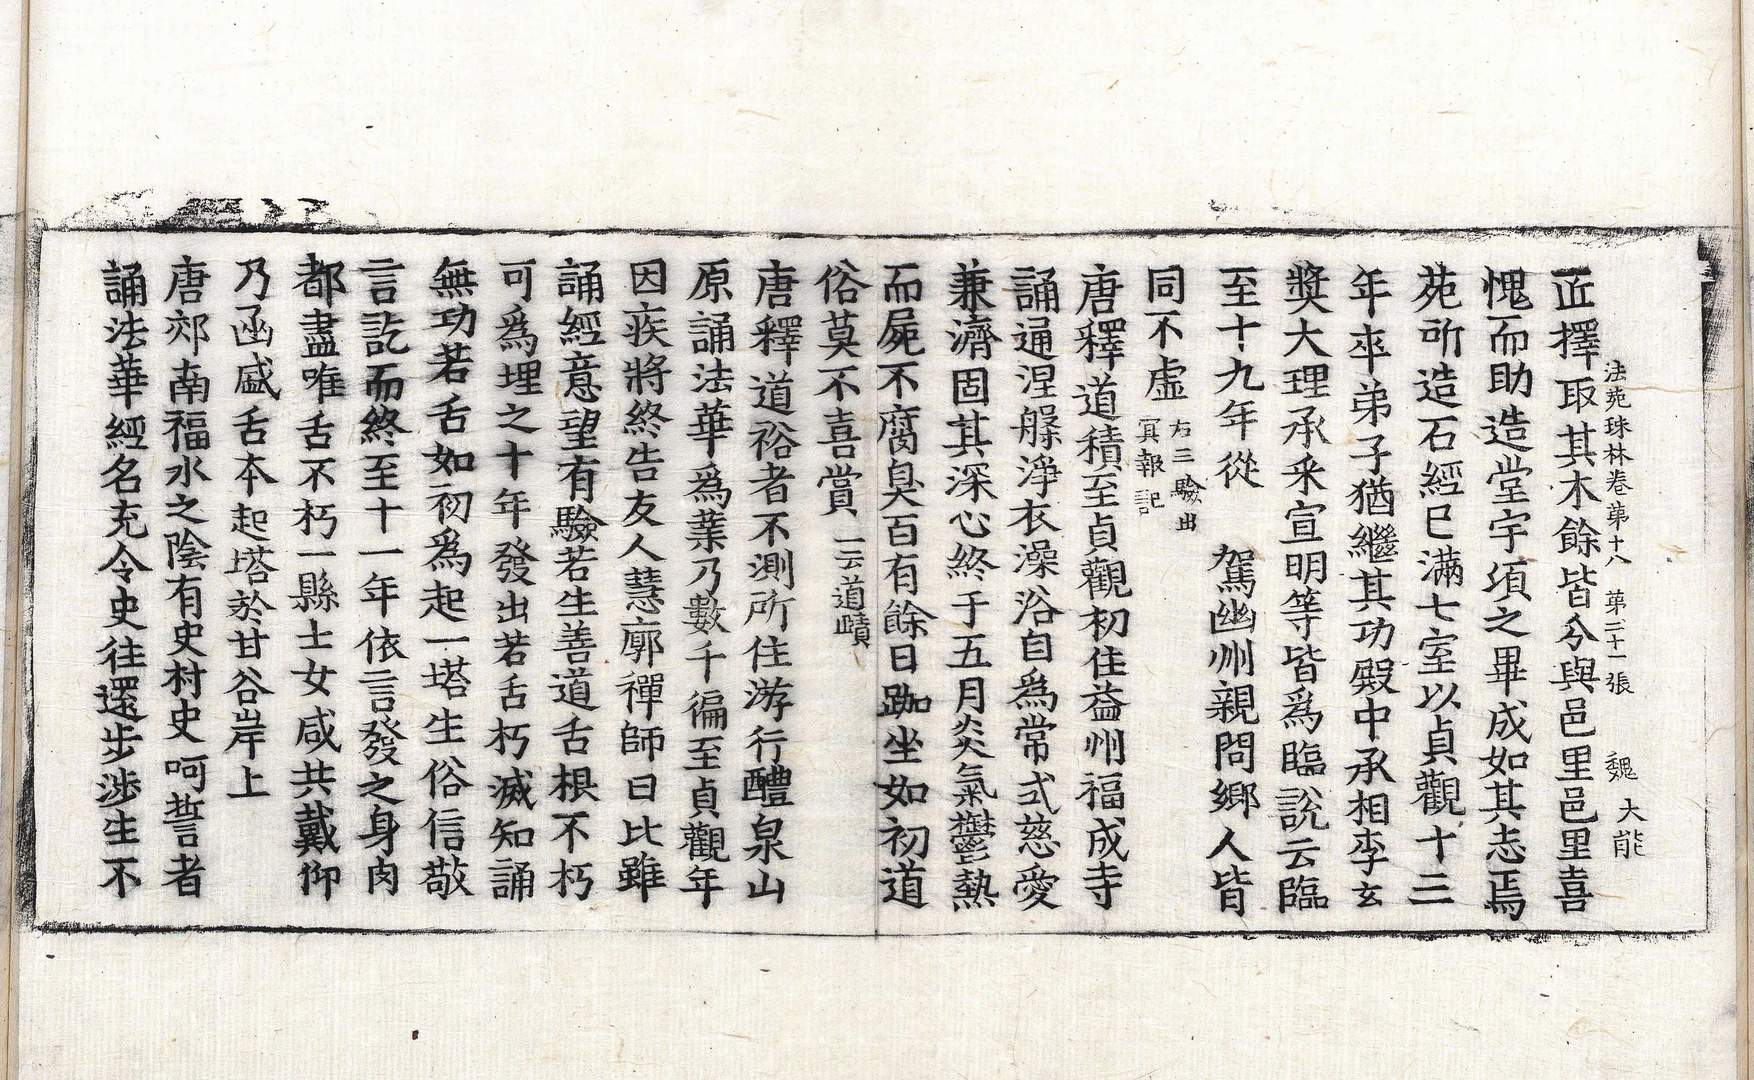 法苑珠林卷第十八　第三十一張　魏大能
匠擇取其木餘皆分與邑里邑里喜
愧而助造堂宇須之畢成如其志焉
苑所造石經已滿七室以貞觀十三
年卒弟子猶繼其功殿中承相李玄
獎大理承采宣明等皆爲臨說云臨
至十九年從　駕幽州親問鄉人皆
同不虛右三驗出冥報記
唐釋道積至貞觀初住益州福成寺
誦通涅槃淨衣澡浴自爲常式慈愛
兼濟固其深心終于五月炎氣鬱熱
而屍不腐臭百有餘日跏坐如初道
俗莫不喜賞一云道賾
唐釋道裕者不測所住游行醴泉山
原誦法華爲業乃數千徧至貞觀年
因疾將終告友人慧廓禪師曰比雖
誦經意望有驗若生善道舌根不朽
可爲埋之十年發出若舌朽滅知誦
無功若舌如初爲起一塔生俗信敬
言訖而終至十一年依言發之身肉
都盡唯舌不朽一縣士女咸共戴仰
乃函盛舌本起塔於甘谷岸上
唐郊南福水之陰有史村史呵誓者
誦法華經名充令史往還步涉生不